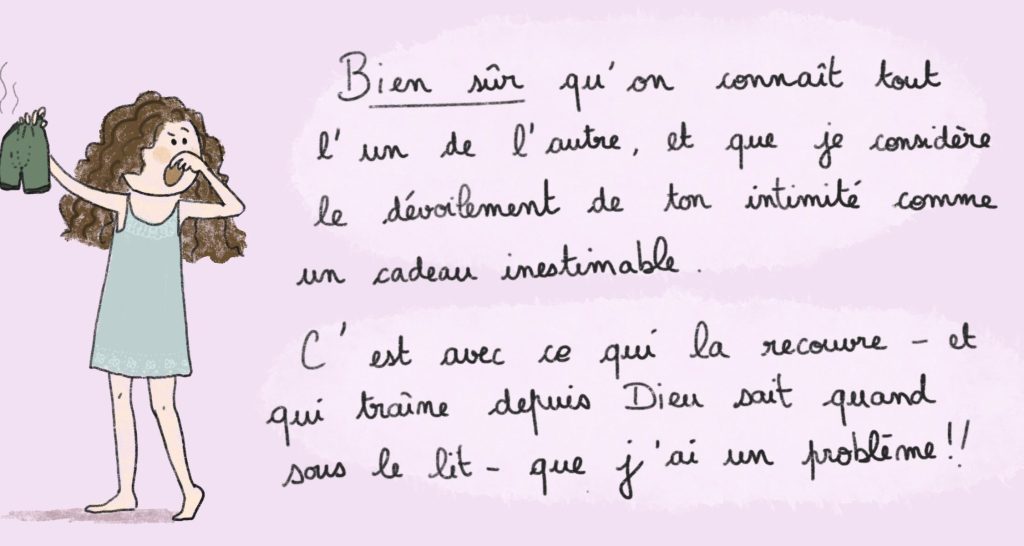 Bien sûr qu'on connaît tout
l'un de l'autre, et que je considère
le dévoilement de ton intimité comme
un cadeau inestimable.
C'est avec ce qui la recouvre - et
qui traîne depuis Dieu sait quand
sous le lit - que j'ai un problème!!